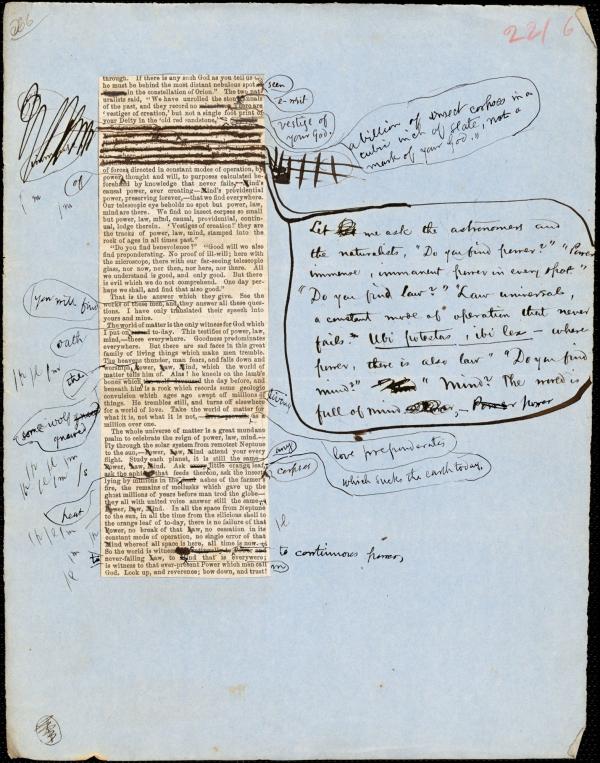 286
22/6
through. If there is any such God as you tell us of
he must be behind the most distant nebulous spot
in the constellation of Orion." The two nat-
uralists said, "We have unrolled the stone annals
of the past, and they record no There are
'vestiges of creation,' but not a single foot print of
your Deity in the 'old red sandstone,'
of forces directed in constant modes of operation, by
power, thought and will, to purposes calculated be-
forehand by knowledge that never fails,—Mind's
causal power, ever creating—Mind's providential
power, preserving forever,—that we find everywhere.
Our telescopic eye beholds no spot but power, law,
mind are there. We find no insect corpses so small
but power, law, mind, causal, providential, contin-
ual, lodge therein. 'Vestiges of creation!' they are
the tracks of power, law, mind, stamped into the
rock of ages in all times past."
"Do you find benevolence?" "Good will we also
find preponderating. No proof of ill-will; here with
the microscope, there with our far-seeing telescopic
glass, nor now, nor then, nor here, nor there. All
we understand is good, and only good. But there
is evil which we do not comprehend. One day per-
haps we shall, and find that also good."
That is the answer they give. See the
works of these men, and they answer all these ques-
tions. I have only translated their speech into
yours and mine.
The world of matter is the only witness for God which
I put on to-day. This testifies of power, law,
mind,—these everywhere. Goodness predominates
everywhere. But there are sad faces in this great
family of living things which make men tremble.
The heavens thunder, man fears, and falls down and
worships, Power, Law, Mind, which the world of
matter tells him of. Alas! he kneels on the lamb's
bones which the day before, and
beneath him is a rock which records some geologic
convulsion which ages ago swept off millions of
things. He trembles still, and turns off elsewhere
for a world of love. Take the world of matter for
what it is, not what it is not, as a
million over one.
The whole universe of matter is a great mundane
psalm to celebrate the reign of power, law, mind.—
Fly through the solar system from remotest Neptune
to the sun,—Power, Law, Mind attend your every
flight. Study each planet, it is still the same—
Power, Law, Mind. Ask little orange leaf,
ask the aphis that feeds thereon, ask the insects
lying by millions in the ashes of the farmer's
fire, the remains of mollusks which gave up the
ghost millions of years before man trod the globe—
they all with united voice answer still the same—
Power, Law, Mind. In all the space from Neptune
to the sun, in all the time from the silicious shell to
the orange leaf of to-day, there is no failure of that
Power, no break of that Law, no cessation in its
constant mode of operation, no single error of that
Mind whereof all space is here, all time is now.
So the world is witness and
never-failing Law, to Mind that is everywere;
is witness to that ever-present Power which men call
God. Look up, and reverence; bow down, and trust!
seen
vestige of
your God.
a billion of insect corpses in a
cubic inch of slate, not a
mark of your God."
of
Let me ask the astronomers and
the naturalists, "Do you find power?" "Power
immense, immanent power in every spot"
"Do you find law?" "Law universal,
a constant mode of operation that never
fails." Ubi potestas, ibi lex — where
power, there is also law" "Do you find
mind?" "Mind? The world is
full of mind, — power
you will find
oath
the
some wolf
gnawed
heat
living
any
corpses
love preponderates
which sucks the earth today,
to continuous power,